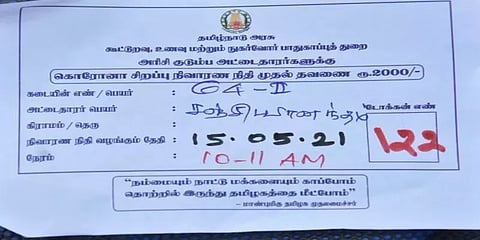 தமிழ்நாடு அரசு
கூட்டுறவு, உணவு மற்றும் நுகர்வோர் பாதுகாப்புத் துறை
அரிசி குடும்ப அட்டைதாரர்களுக்கு
கொரோனா சிறப்பு நிவாரண நிதி முதல் தவணை ரூ.2000/-
கடையின் எண் / பெயர் : G4-II
அட்டைதாரர் பெயர் :
டோக்கன் எண்
கிராமம் / தெரு :
122
நிவாரண நிதி வழங்கும் தேதி : 15.05.21
நேரம் : 10-11 AM
“நம்மையும் நாட்டு மக்களையும் காப்போம்
தொற்றில் இருந்து தமிழகத்தை மீட்போம்”
- மாண்புமிகு தமிழக முதலமைச்சர்